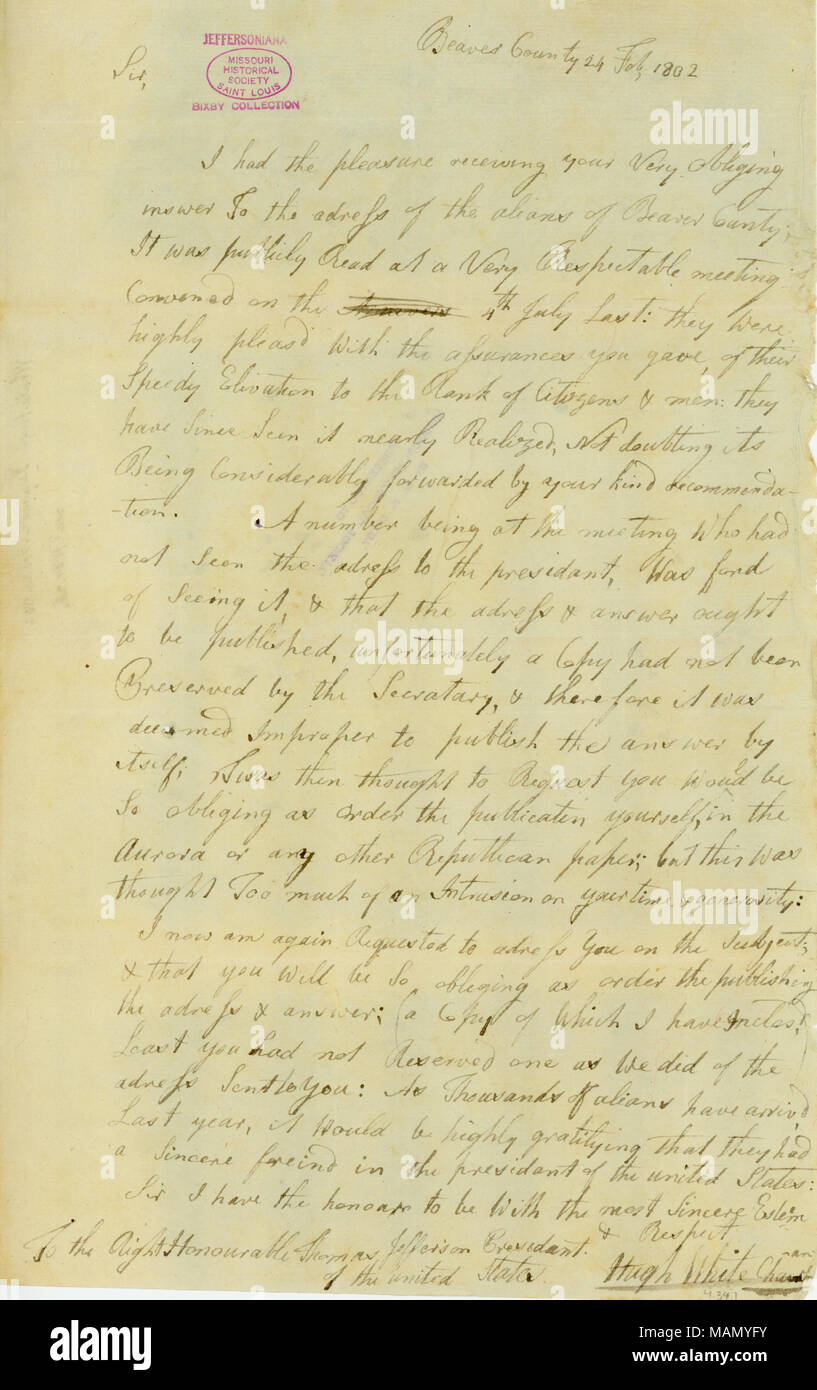 Beaver County 24 Feb, 1802
JEFFERSONIANA
MISSOURI
HISTORICAL
SOCIETY
SAINT LOUIS
BIXBY COLLECTION
Sir,
I had the pleasure receiving your Very obliging
answer To the adress of the alians of Beaver County;
It was publicly Read at a Very Respectable meeting
Convened on the 4th July Last: they were
highly pleasd With the assurances you gave, of their
Speedy Elivation to the Rank of Citizens & men: they
have Since Seen it nearly Realized, Not doubting its
Being Considerably forwarded by your kind recommenda-
-tion. A number being at the meeting Who had
not Seen the adress to the presidant, Was fond
of Seeing it, & that the adress & answer ought
to be published, unfortunately a Copy had not been
Preserved by the Secratary, & therefore it was
deemed Improper to publish the answer by
itself; twas then thought to Request you Would be
So obliging as order the publicatin yourself, in the
Aurora or any other Republican paper; but this Was
thought Too much of an Intrusion on your time & generosity:
I now am again Requested to adress You on the Subject;
& that you Will be So obliging as order the publishing
the adress & answer; (a Copy of Which I have inclosd
Least you had not Reserved one as We did of the
adress Sent to You: As Thousands of alians have arrivd
Last year, it Would be highly gratifying that they had
a Sincere freind in the president of the united States:
Sir I have the honour to be With the most Sincere Esteem
& Respect
To the Right Honourable Thomas Jefferson Presedant.
of the united States
Hugh White Chairman
4391
alamy
alamy stock photo
MAMYFY
www.alamy.com